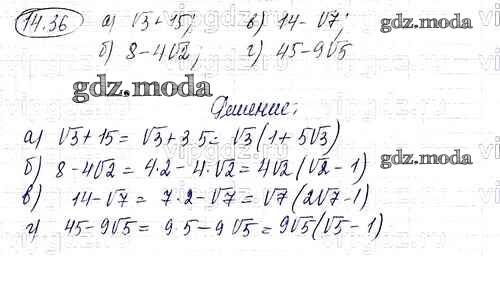 14.36 а) √3+15; в) 14-√7;
б) 8-4√2; г) 45-9√5
gdz.moda
gdz.moda
Решение:
а) √3+15= √3+3·5= √3(1+5√3)
gdz.moda
б) 8-4√2= 4·2-4·√2= 4√2(√2-1)
в) 14-√7= 7·2-√7= √7(2√7-1)
г) 45-9√5= 9·5-9√5= 9√5(√5-1)
gdz.moda